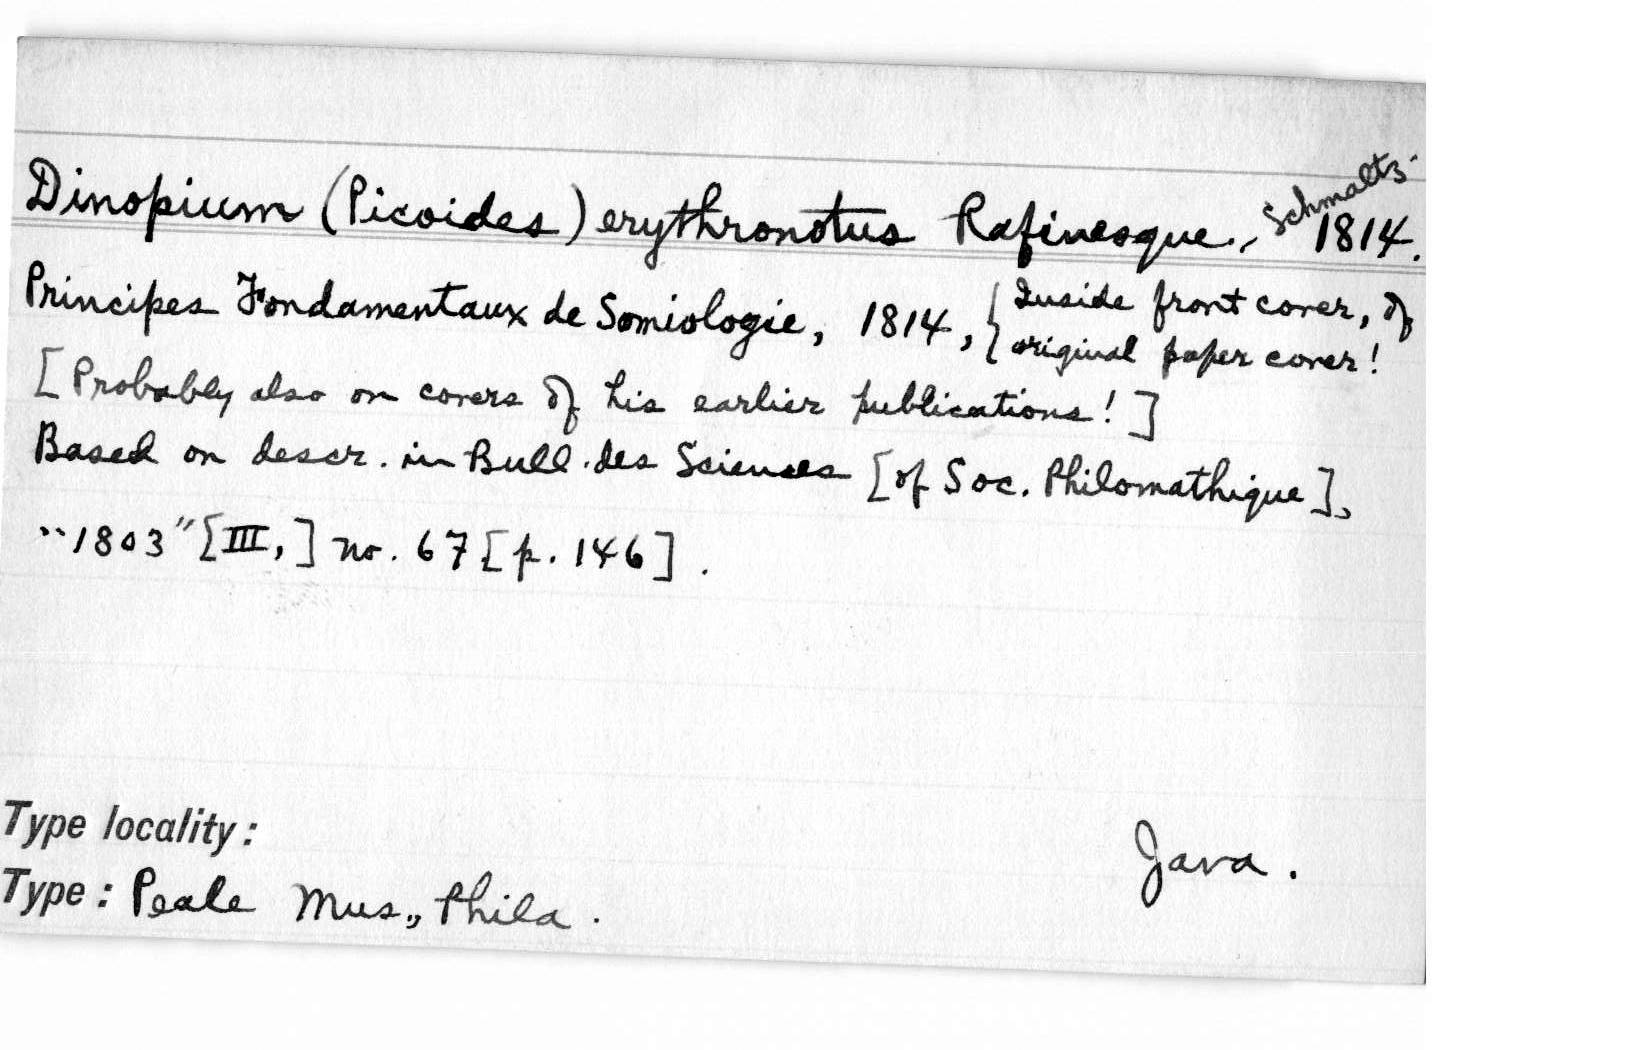 Dinopium (Picoides) erythronotus Rafinesque., Schmaltz 1814.
Principes Fondamentaux de Somiologie, 1814, { Inside front cover, of
original paper cover!
[Probably also on covers of his earlier publications!]
Based on descr. in Bull. des Sciences [of Soc. Philomathique],
"1803" [III,] no. 67 [p. 146].
Type locality: Java.
Type: Peale Mus., Phila.